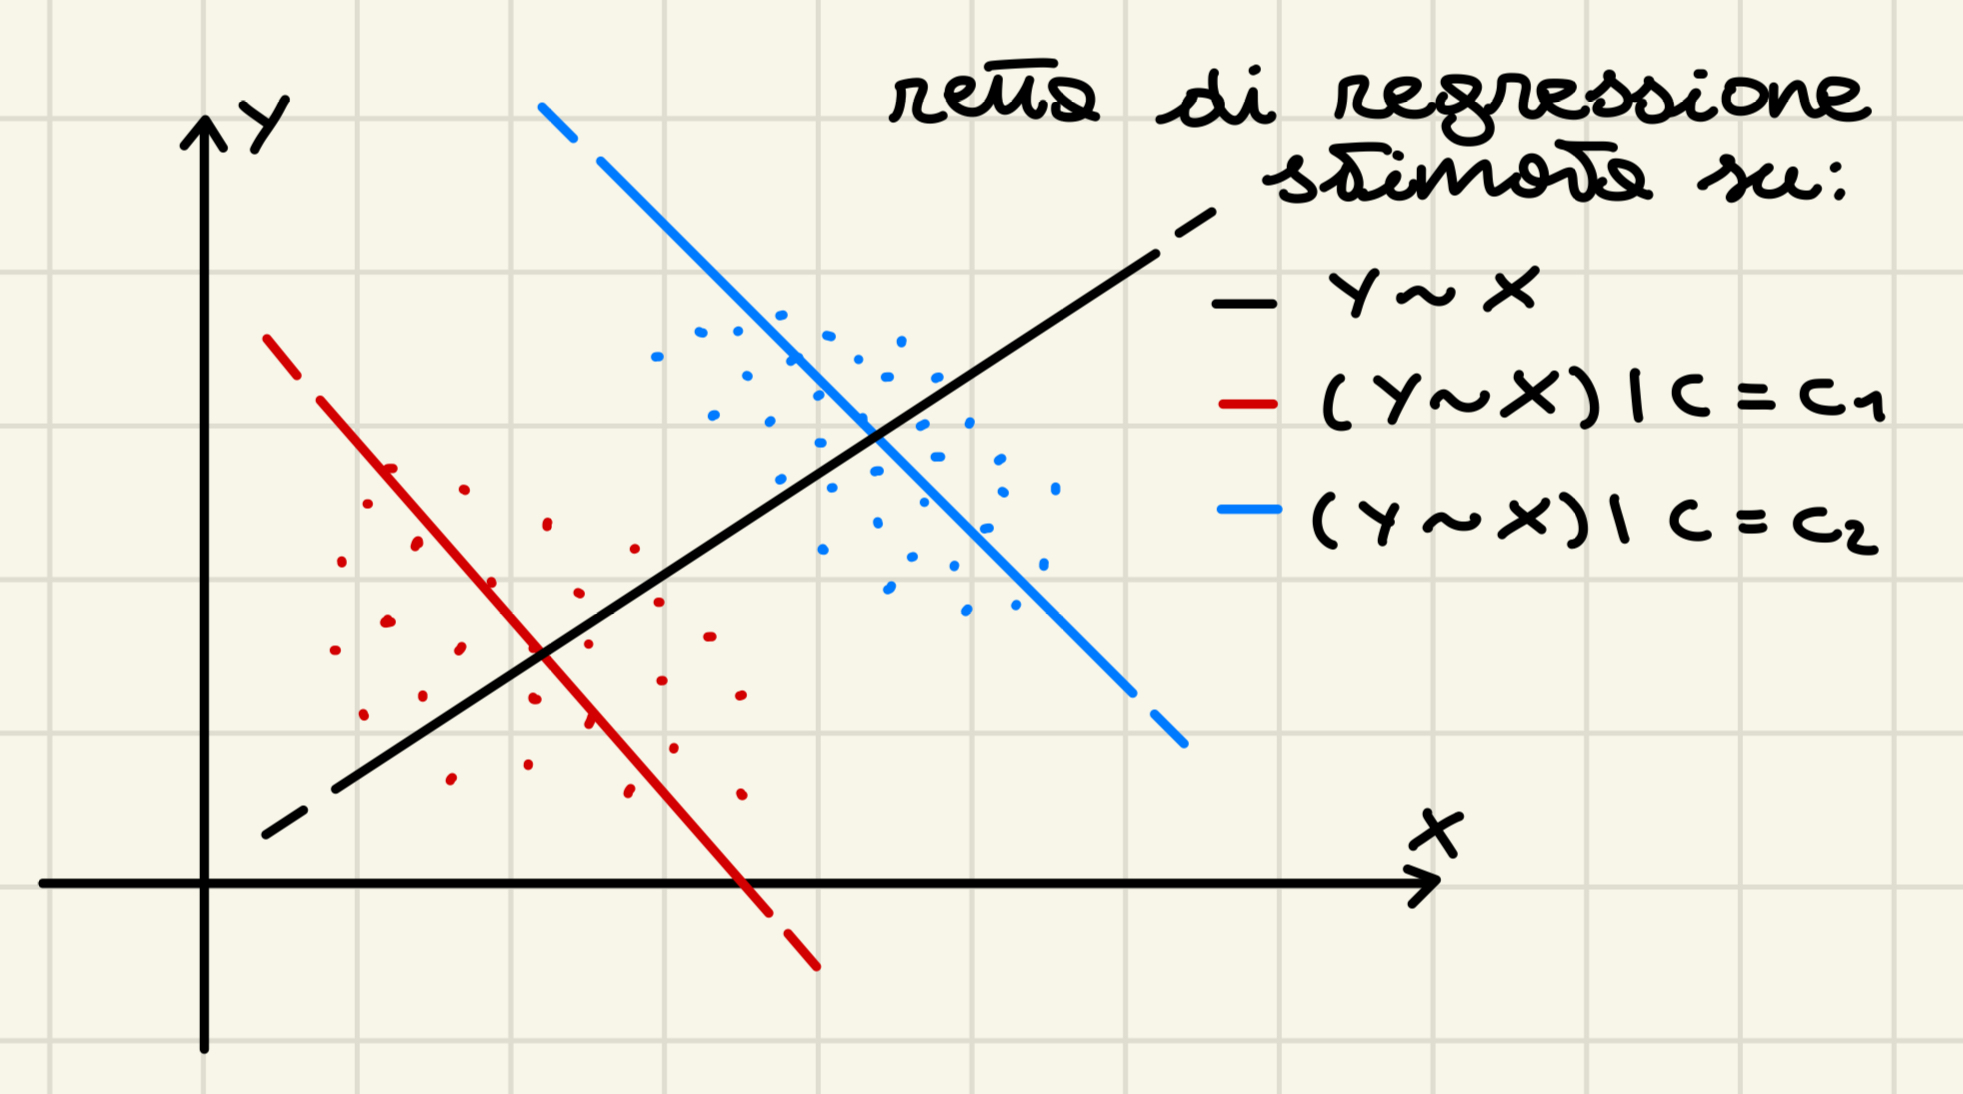 Y
retta di regressione
stimata su:
Y ~ X
(Y ~ X) | C = C1
(Y ~ X) | C = C2
X